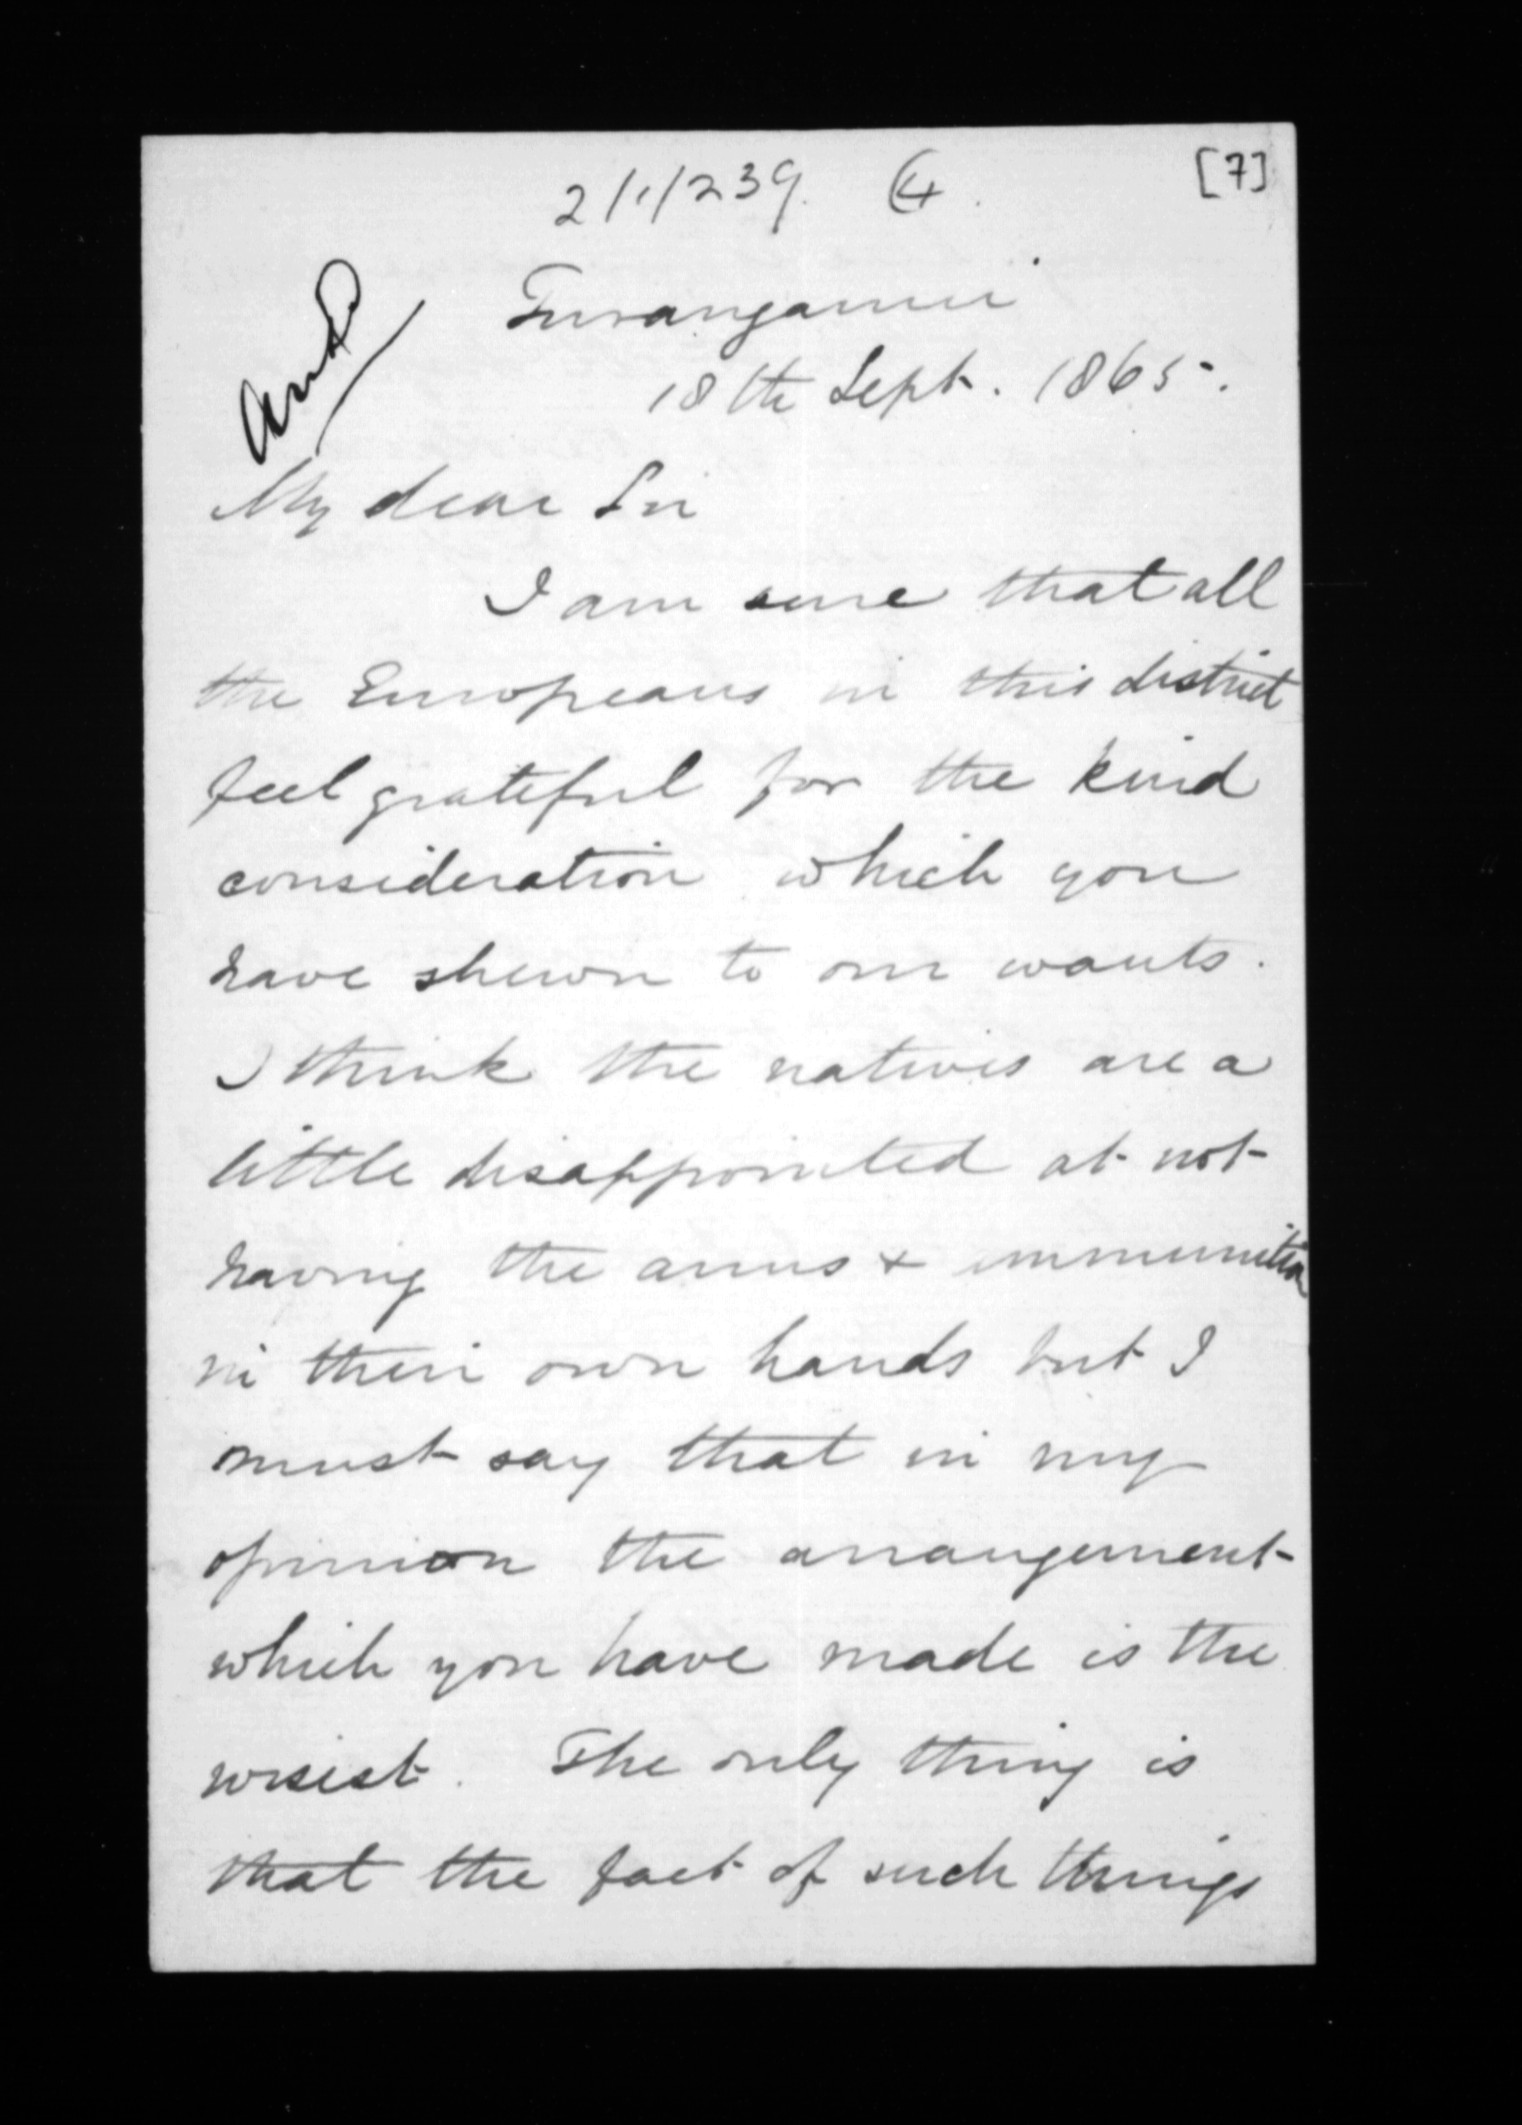 2/1/239. (4.
[7]
Turanganui
18th Sept. 1865.
Ansd
My dear Sir
I am sure that all
the Europeans in this district
feel grateful for the kind
consideration which you
have shewn to our wants.
I think the natives are a
little disappointed at not
having the arms & ammunition
in their own hands but I
must say that in my
opinion the arrangement
which you have made is the
wisest. The only thing is
that the fact of such things